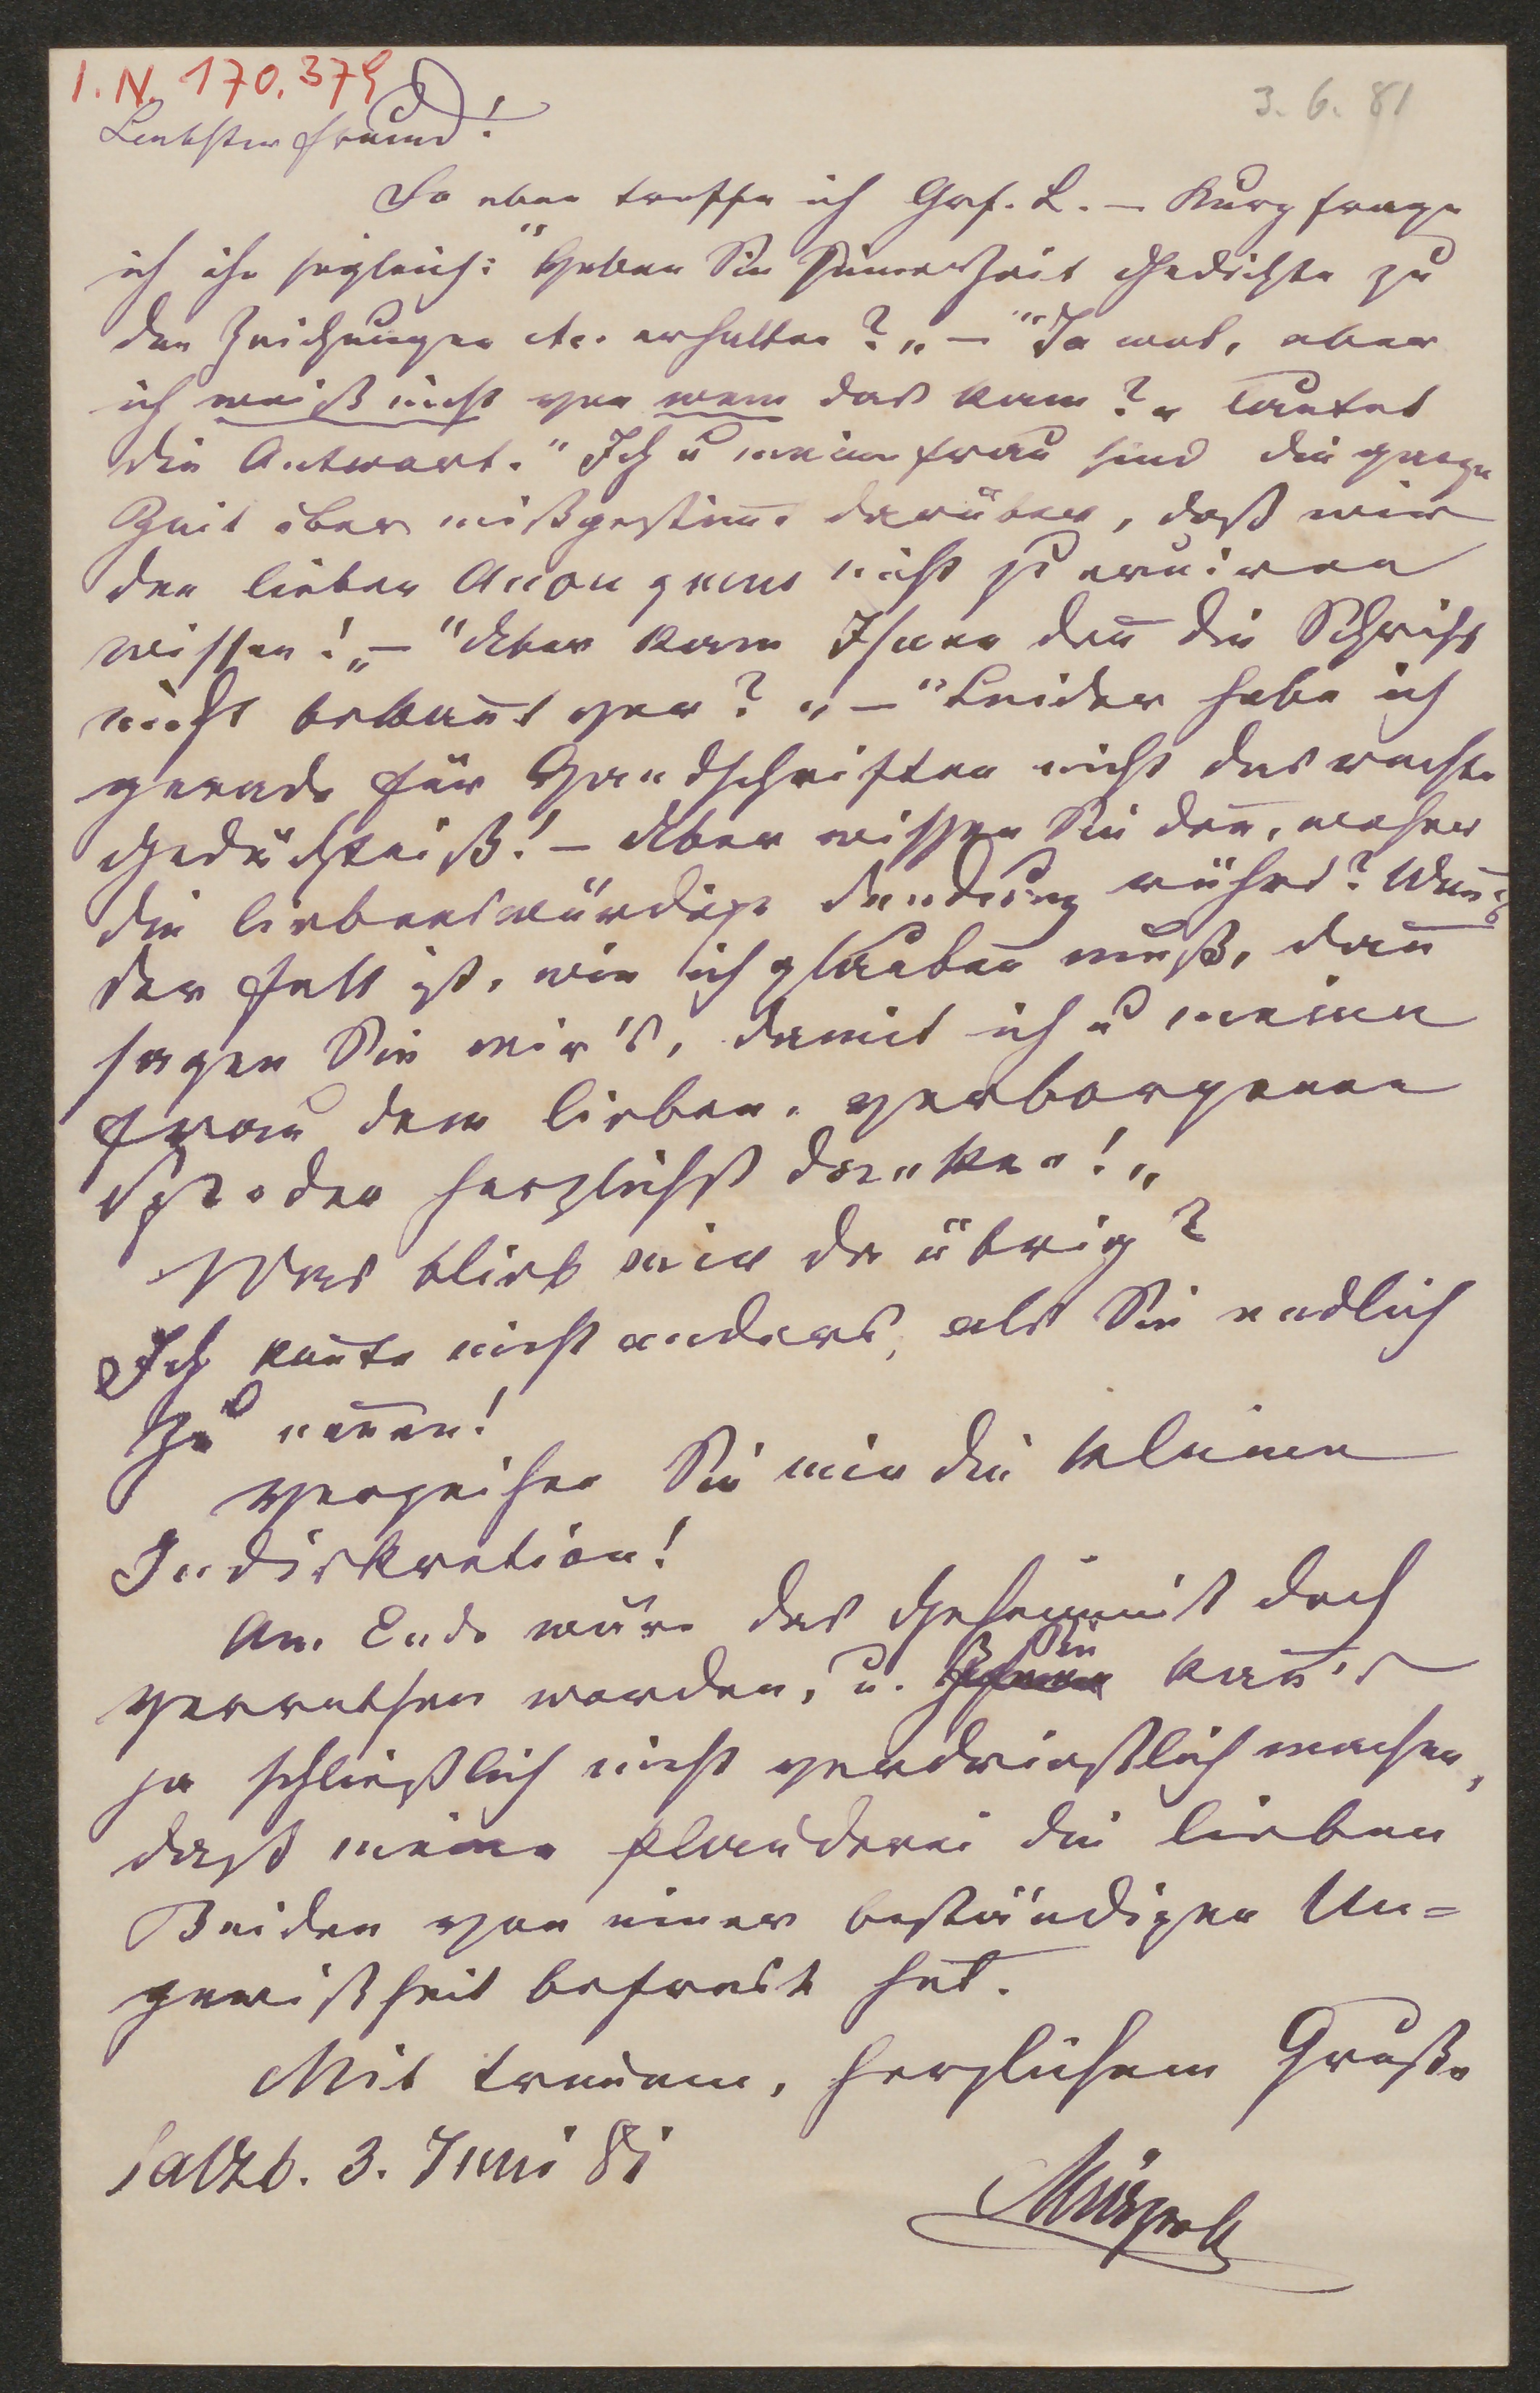 I. N. 170.379
3. 6. 81
Liebster Freund!
So eben treffe ich Grf. L. – Kurz frage
ich ihn sogleich: "Haben Sie seiner Zeit Gedichte zu
den Zeichnungen etc. erhalten?" – "Ja wol, aber
ich weiß nicht von wem das kam?" lautet
die Antwort. "Ich u meine Frau sind die ganze
Zeit über mißgestim̄t darüber, daß wir
den lieben Anonymus nicht zu eruiren
wissen!" – "Aber kam Ihnen den̄ die Schrift
nicht bekan̄t vor?" – "Leider habe ich
gerade für Handschriften nicht das rechte
Gedächtniß! – Aber wissen Sie den̄, woher
die liebenswürdige Sendung rührt? Wen̄'s
der Fall ist, wie ich glauben muß, dan̄
sagen Sie mir's, damit ich u meine
Frau dem lieben, verborgenen
Spender herzlichst danken!"
Was blieb mir da übrig?
Ich kon̄te nicht anders, als Sie endlich
zu nen̄en!
Verzeihen Sie mir die kleine
Indiskretion!
Am Ende wäre das Geheimnis doch
verrathen worden, u. Sie kan̄'s
ja schließlich nicht verdrießlich machen,
daß meine Plauderei die lieben
Beiden von einer beständigen Un=
gewißheit befreit hat.
Mit treuem, herzlichem Gruße
Salzb. 3. Juni 81